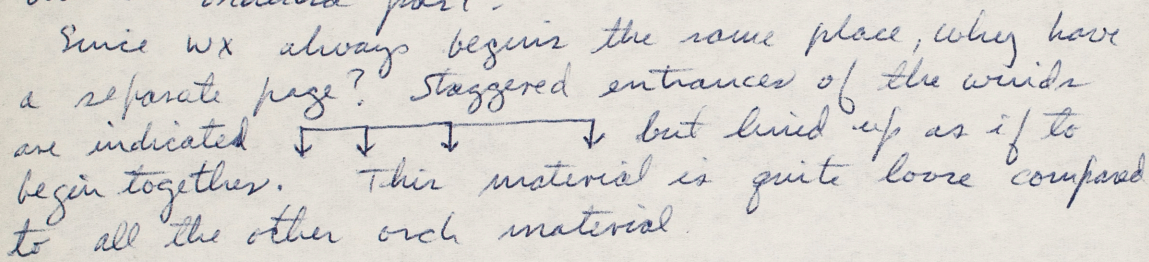 indeterd part.
Since wx always begins the same place, why have
a separate page? Staggered entrances of the winds
are indicated but lined up as if to
begin together. This material is quite loose compared
to all the other orch material.